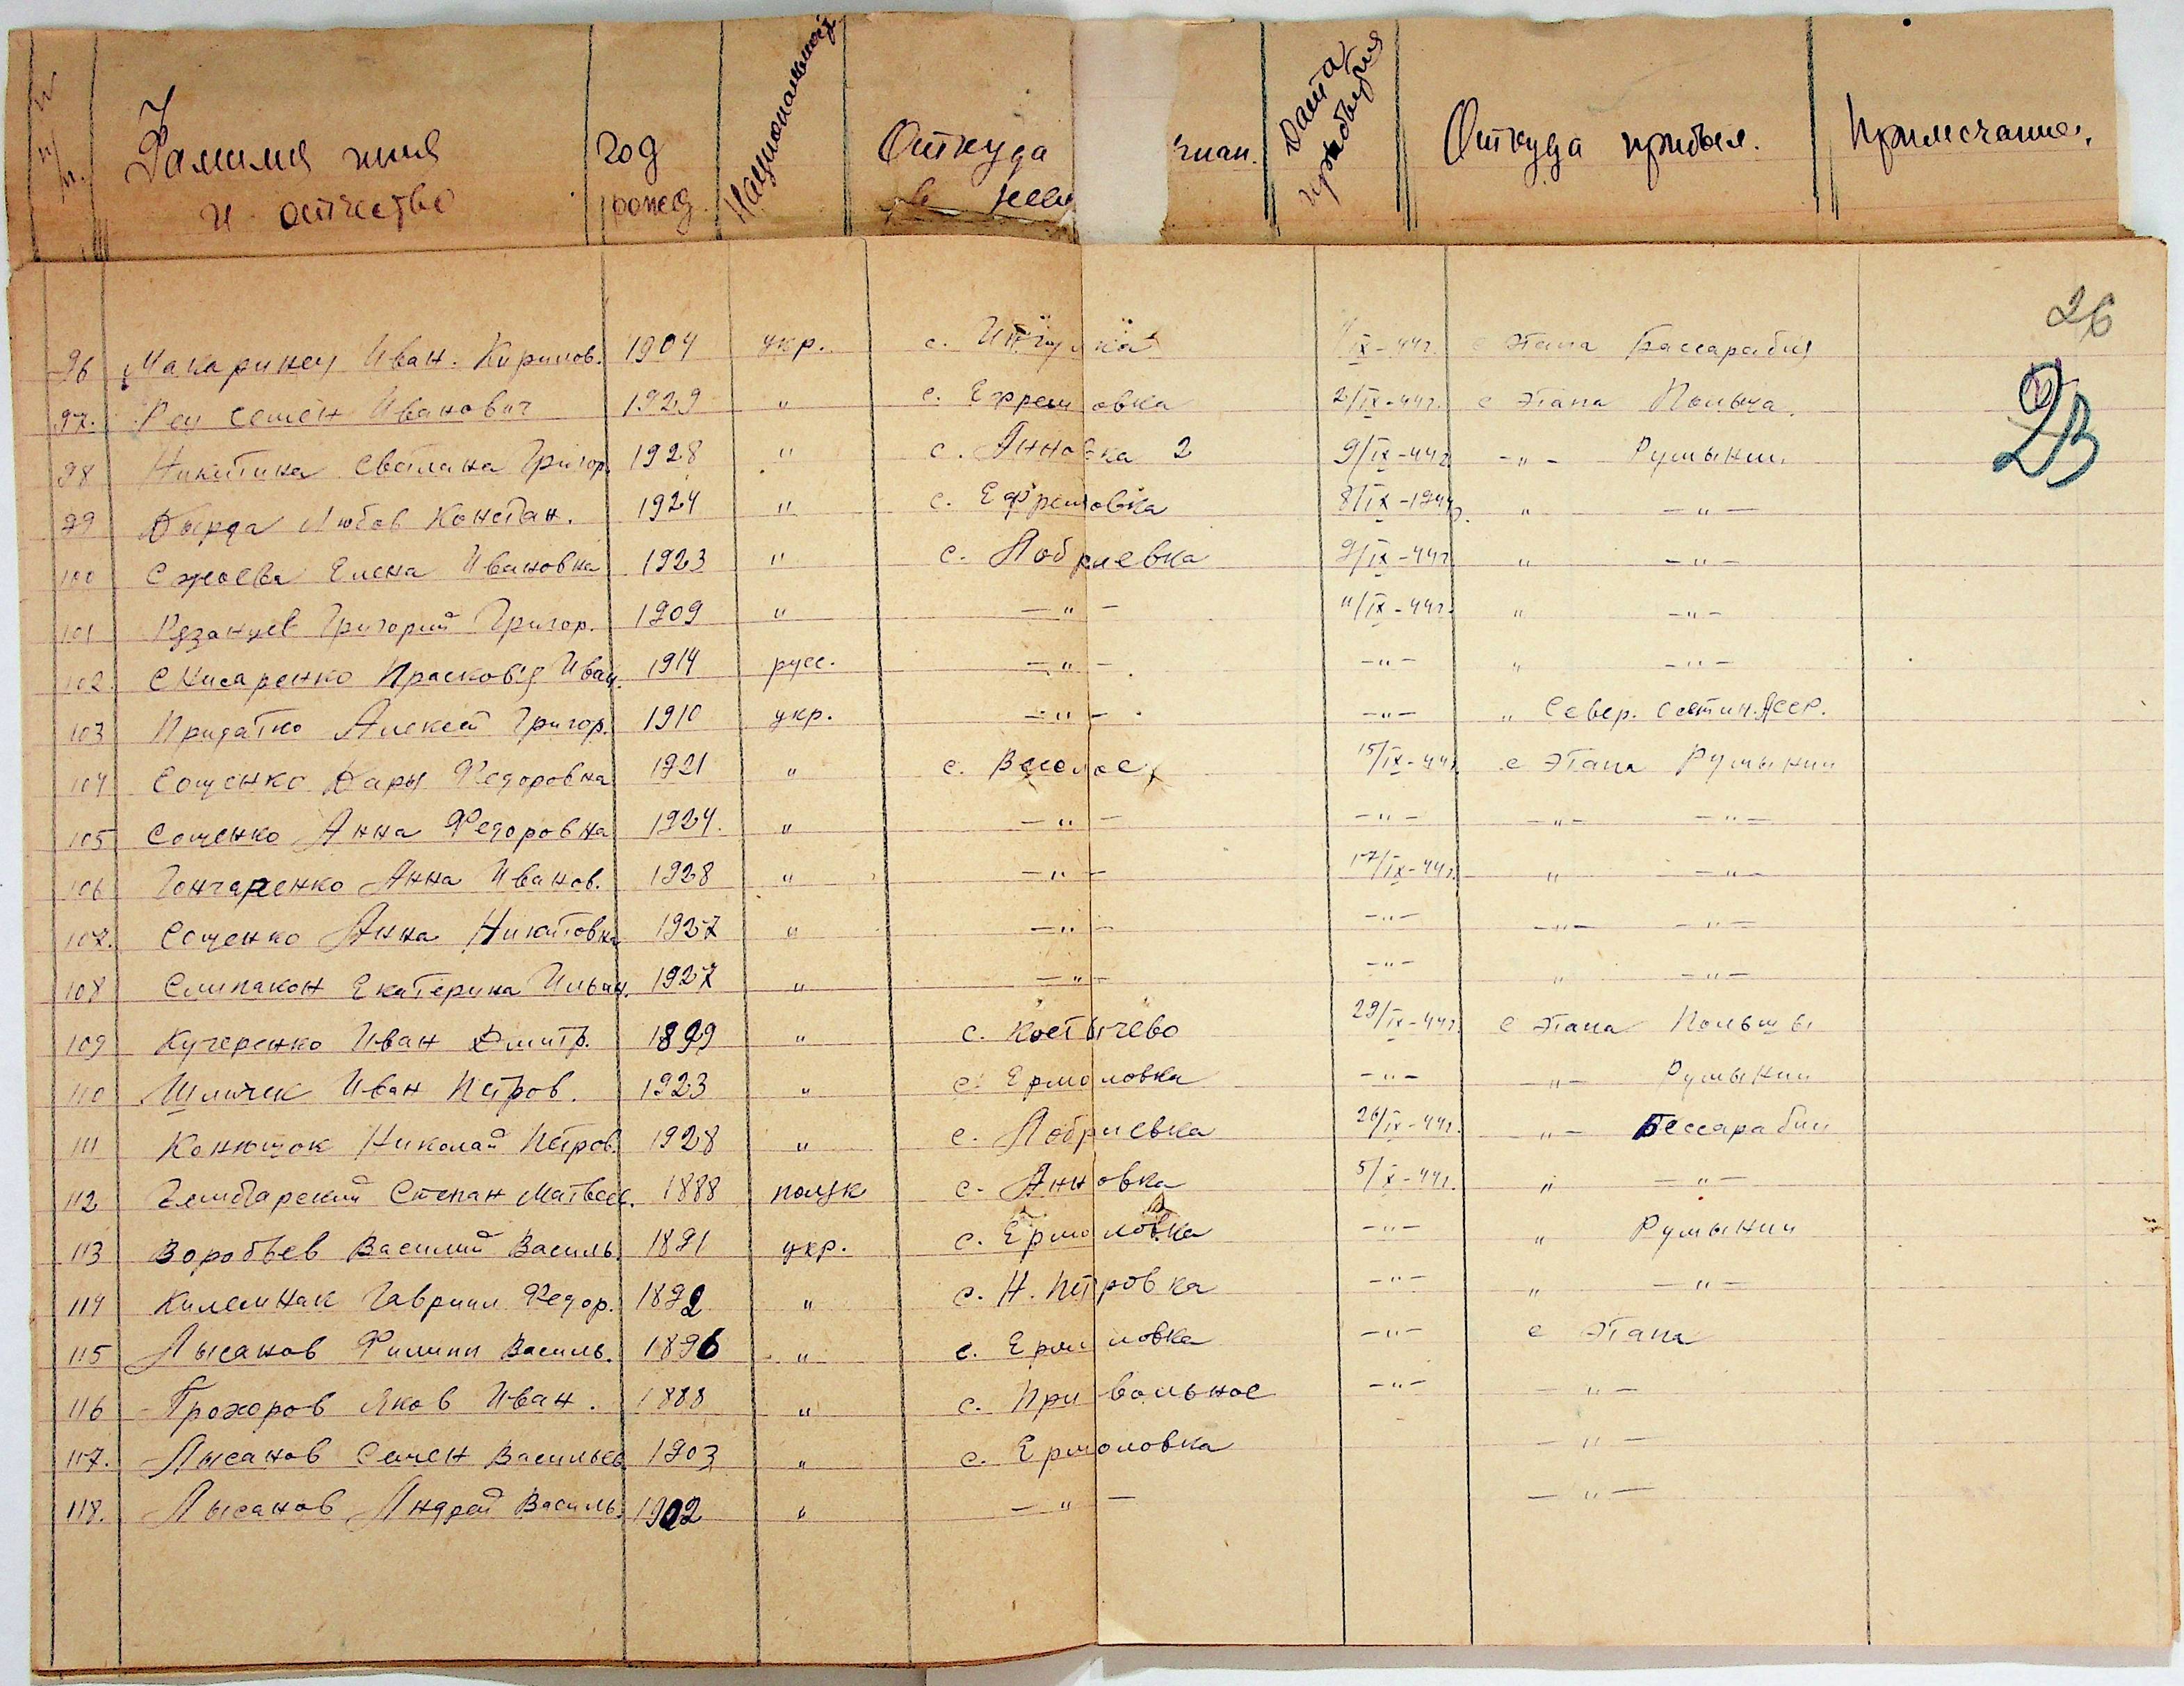 п/п. Фамилия имя и отчество Год рожд. Национальность Откуда Дата прибытия Откуда прибыл. Примечание.
26
23
96 Макаринец Иван. Кирилов. 1904 укр. с. IX-44г. с Этапа Бассарабия
97. Рец Семен Иванович 1929 " с. Ефремовка 2/IX-44г. с Этапа Польша.
98 Никитина Светлана Григор. 1928 " с. Анновка 2 9/IX-44г. -"- Румынии.
99 Дырда Любов Констан. 1924 " с. Ефремовка 8/IX-1944г. " -"-
100 Елена Ивановна 1923 " с. 9/IX-44г. " -"-
101 Рязанцев Григорий Григор. 1909 " -"- 11/IX-44г. " -"-
102. Снисаренко Прасковья Иван. 1914 русс. -"- -"- " -"-
103 Придатко Алексей Григор. 1910 укр. -"- -"- " Север. Осетин. АССР.
104 Сощенко Дарья Федоровна 1921 " с. Веселое 15/IX-44г. с Этапа Румынии
105 Сощенко Анна Федоровна 1924. " -"- -"- -"- -"-
106 Гончаренко Анна Иванов. 1928 " -"- 17/IX-44г. " -"-
107. Сощенко Анна Никитовна 1927 " -"- -"- -"- -"-
108 Слипакон Екатерина Ильин. 1927 " -"- -"- " -"-
109 Кучеренко Иван Дмитр. 1899 " с. Костычево 29/IX-44г. с Этапа Польшы
110 Шлычек Иван Петров. 1923 " с. Ермоловка -"- -"- Румынии
111 Конюшок Николай Петров. 1928 " с. 26/IX-44г. -"- Бессарабии
112 Гембарский Степан Матвеев. 1888 поляк с. Анновка 5/X-44г. " -"-
113 Воробьев Василий Василь. 1891 укр. с. Ермоловка -"- " Румынии
114 Килемник Гавриил Федор. 1892 " с. Н. Петровка -"- " -"-
115 Лысанов Филипп Василь. 1896 " с. Ермоловка -"- с Этапа
116 Прохоров Яков Иван. 1888 " с. Привольное -"- -"-
117. Лысанов Семен Васильев. 1903 " с. Ермоловка -"-
118. Лысанов Андрей Василь. 1902 " -"- -"-